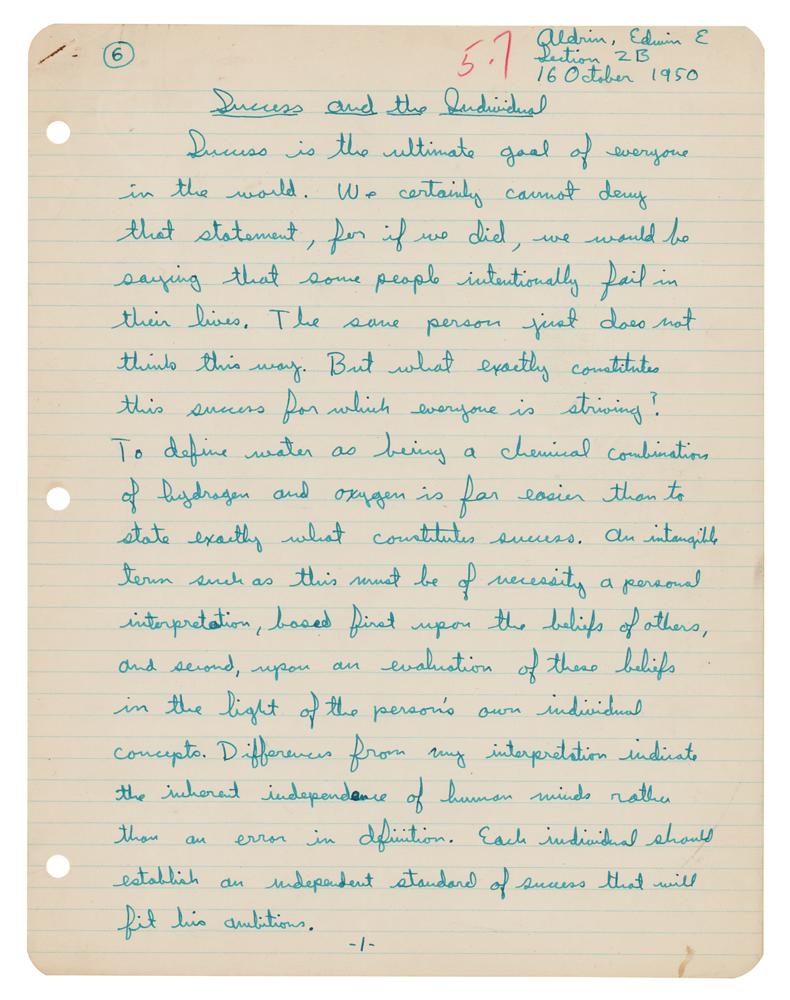 6
5.7
Aldrin, Edwin E
Section 2B
16 October 1950
Success and the Individual
Success is the ultimate goal of everyone
in the world. We certainly cannot deny
that statement, for if we did, we would be
saying that some people intentionally fail in
their lives. The sane person just does not
think this way. But what exactly constitutes
this success for which everyone is striving?
To define water as being a chemical combination
of hydrogen and oxygen is far easier than to
state exactly what constitutes success. An intangible
term such as this must be of necessity a personal
interpretation, based first upon the beliefs of others,
and second, upon an evaluation of these beliefs
in the light of the person's own individual
concepts. Differences from my interpretation indicate
the inherent independence of human minds rather
than an error in definition. Each individual should
establish an independent standard of success that will
fit his ambitions.
-1-